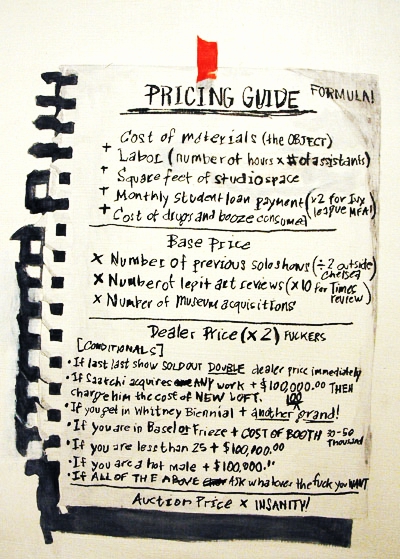 PRICING GUIDE
FORMULA!
Cost of materials (the OBJECT)
+ Labor (number of hours x # of assistants)
+ Square feet of studio space
+ Monthly student loan payment (x2 for Ivy league MFA)
+ Cost of drugs and booze consumed
Base Price
x Number of previous solo shows (÷2 outside Chelsea)
x Number of legit art reviews (x10 for Times review)
x Number of Museum acquisitions
Dealer Price (x2) FUCKERS
[CONDITIONALS]
• If last last show SOLD OUT DOUBLE dealer price immediately
• If Saatchi acquires ANY work + $100,000.00 THEN
charge him the cost of NEW LOFT.
• If you get in Whitney Biennial + another grand!
100
• If you are in Basel or Frieze + COST OF BOOTH 30-50 Thousand
• If you are less than 25 + $100,000.00
• If you are a hot male + $100,000.00
• If ALL OF THE ABOVE ASK whatever the fuck you WANT
Auction Price x INSANITY!